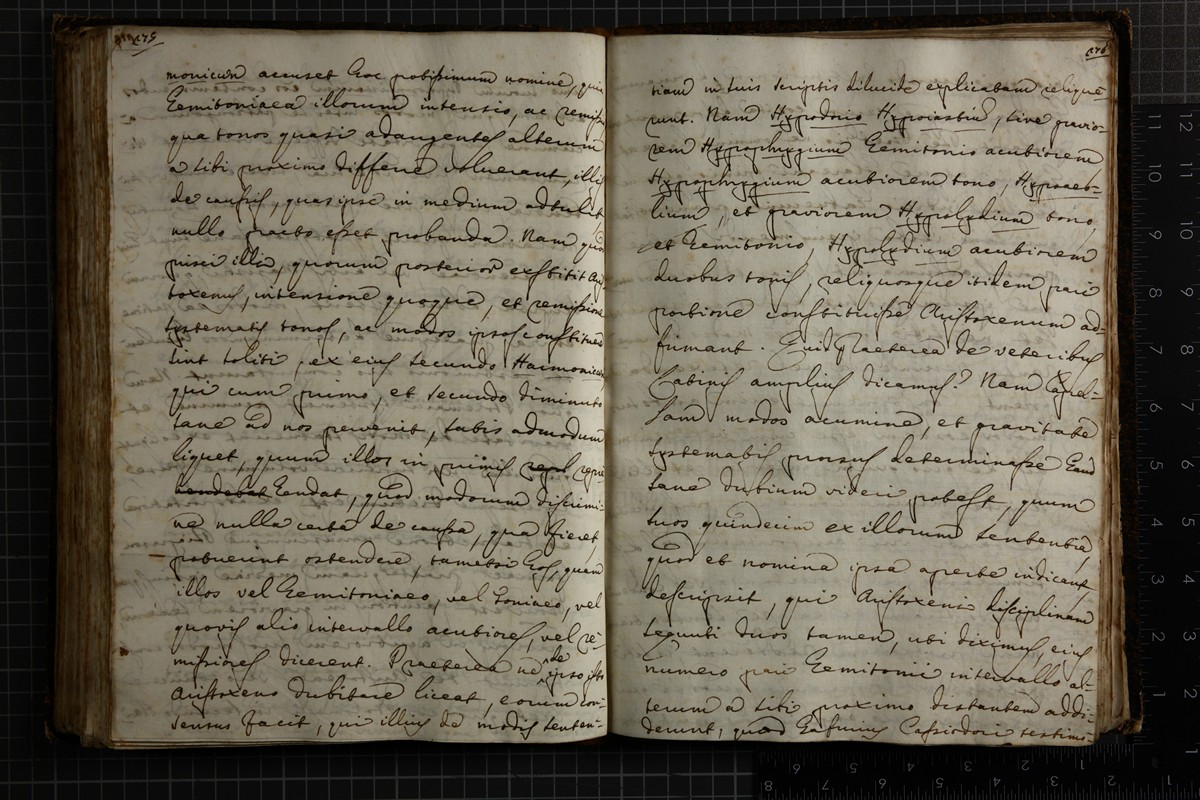 275
monicum accuset hoc potissimum nomine, quia
hemitoniaea illorum intensio, ac remissio
qua tonos quasi adaugentes alterum
a sibi proximo differre voluerant, illis
de caussis, quas ipse in medium adtulit
nullo pacto esset probanda. Nam quo
prisci illi, quorum posterior exstitit Ari
toxenus, intensione quoque, et remissione
systematis tonos, ac modos ipsos constituere
sint soliti, ex eius secundo Harmonicor
qui cum primo, et secundo diminuto
sane ad nos pervenit, satis admodum
liquet, quum illos in primis repre
hendat, quod modorum discrimi-
ne nulla certa de caussa, qua fieret,
potuerint ostendere, tametsi hos, quam
illos vel hemitoniaeo, vel toniaeo, vel
quovis alio intervallo acutiores, vel re-
missiores dicerent. Praeterea ne de ipso isto
Aristoxeno dubitare liceat, eorum con-
sensus facit, qui illius de modis senten-
276
tiam in suis scriptis dilucide explicatam relique-
runt. Nam Hypodorio Hypoiastium, sive gravio-
rem Hypophrygium hemitonio acutiorem
Hypophrygium acutiorem tono, Hypoaeo-
lium, et graviorem Hypolydium tono,
et hemitonio, Hypolydium acutiorem
duobus tonis, reliquosque itidem pari
portione constituisse Aristoxenum ad-
firmant. Quid praeterea de veteribus
Latinis amplius dicamus? Nam Capel-
lam modos acumine, et gravitate
systematis prorsus determinasse haud
sane dubium videri potest, quum
tuos quindecim ex illorum sententia,
quod et nomina ipsa aperte indicant,
descripsit, qui Aristoxeni disciplinam
sequuti duos tamen, ubi diximus, eius
numero pari hemitonii intervallo al-
terum a sibi proximo distantem addi-
derunt, quod Cassiodori testimo-